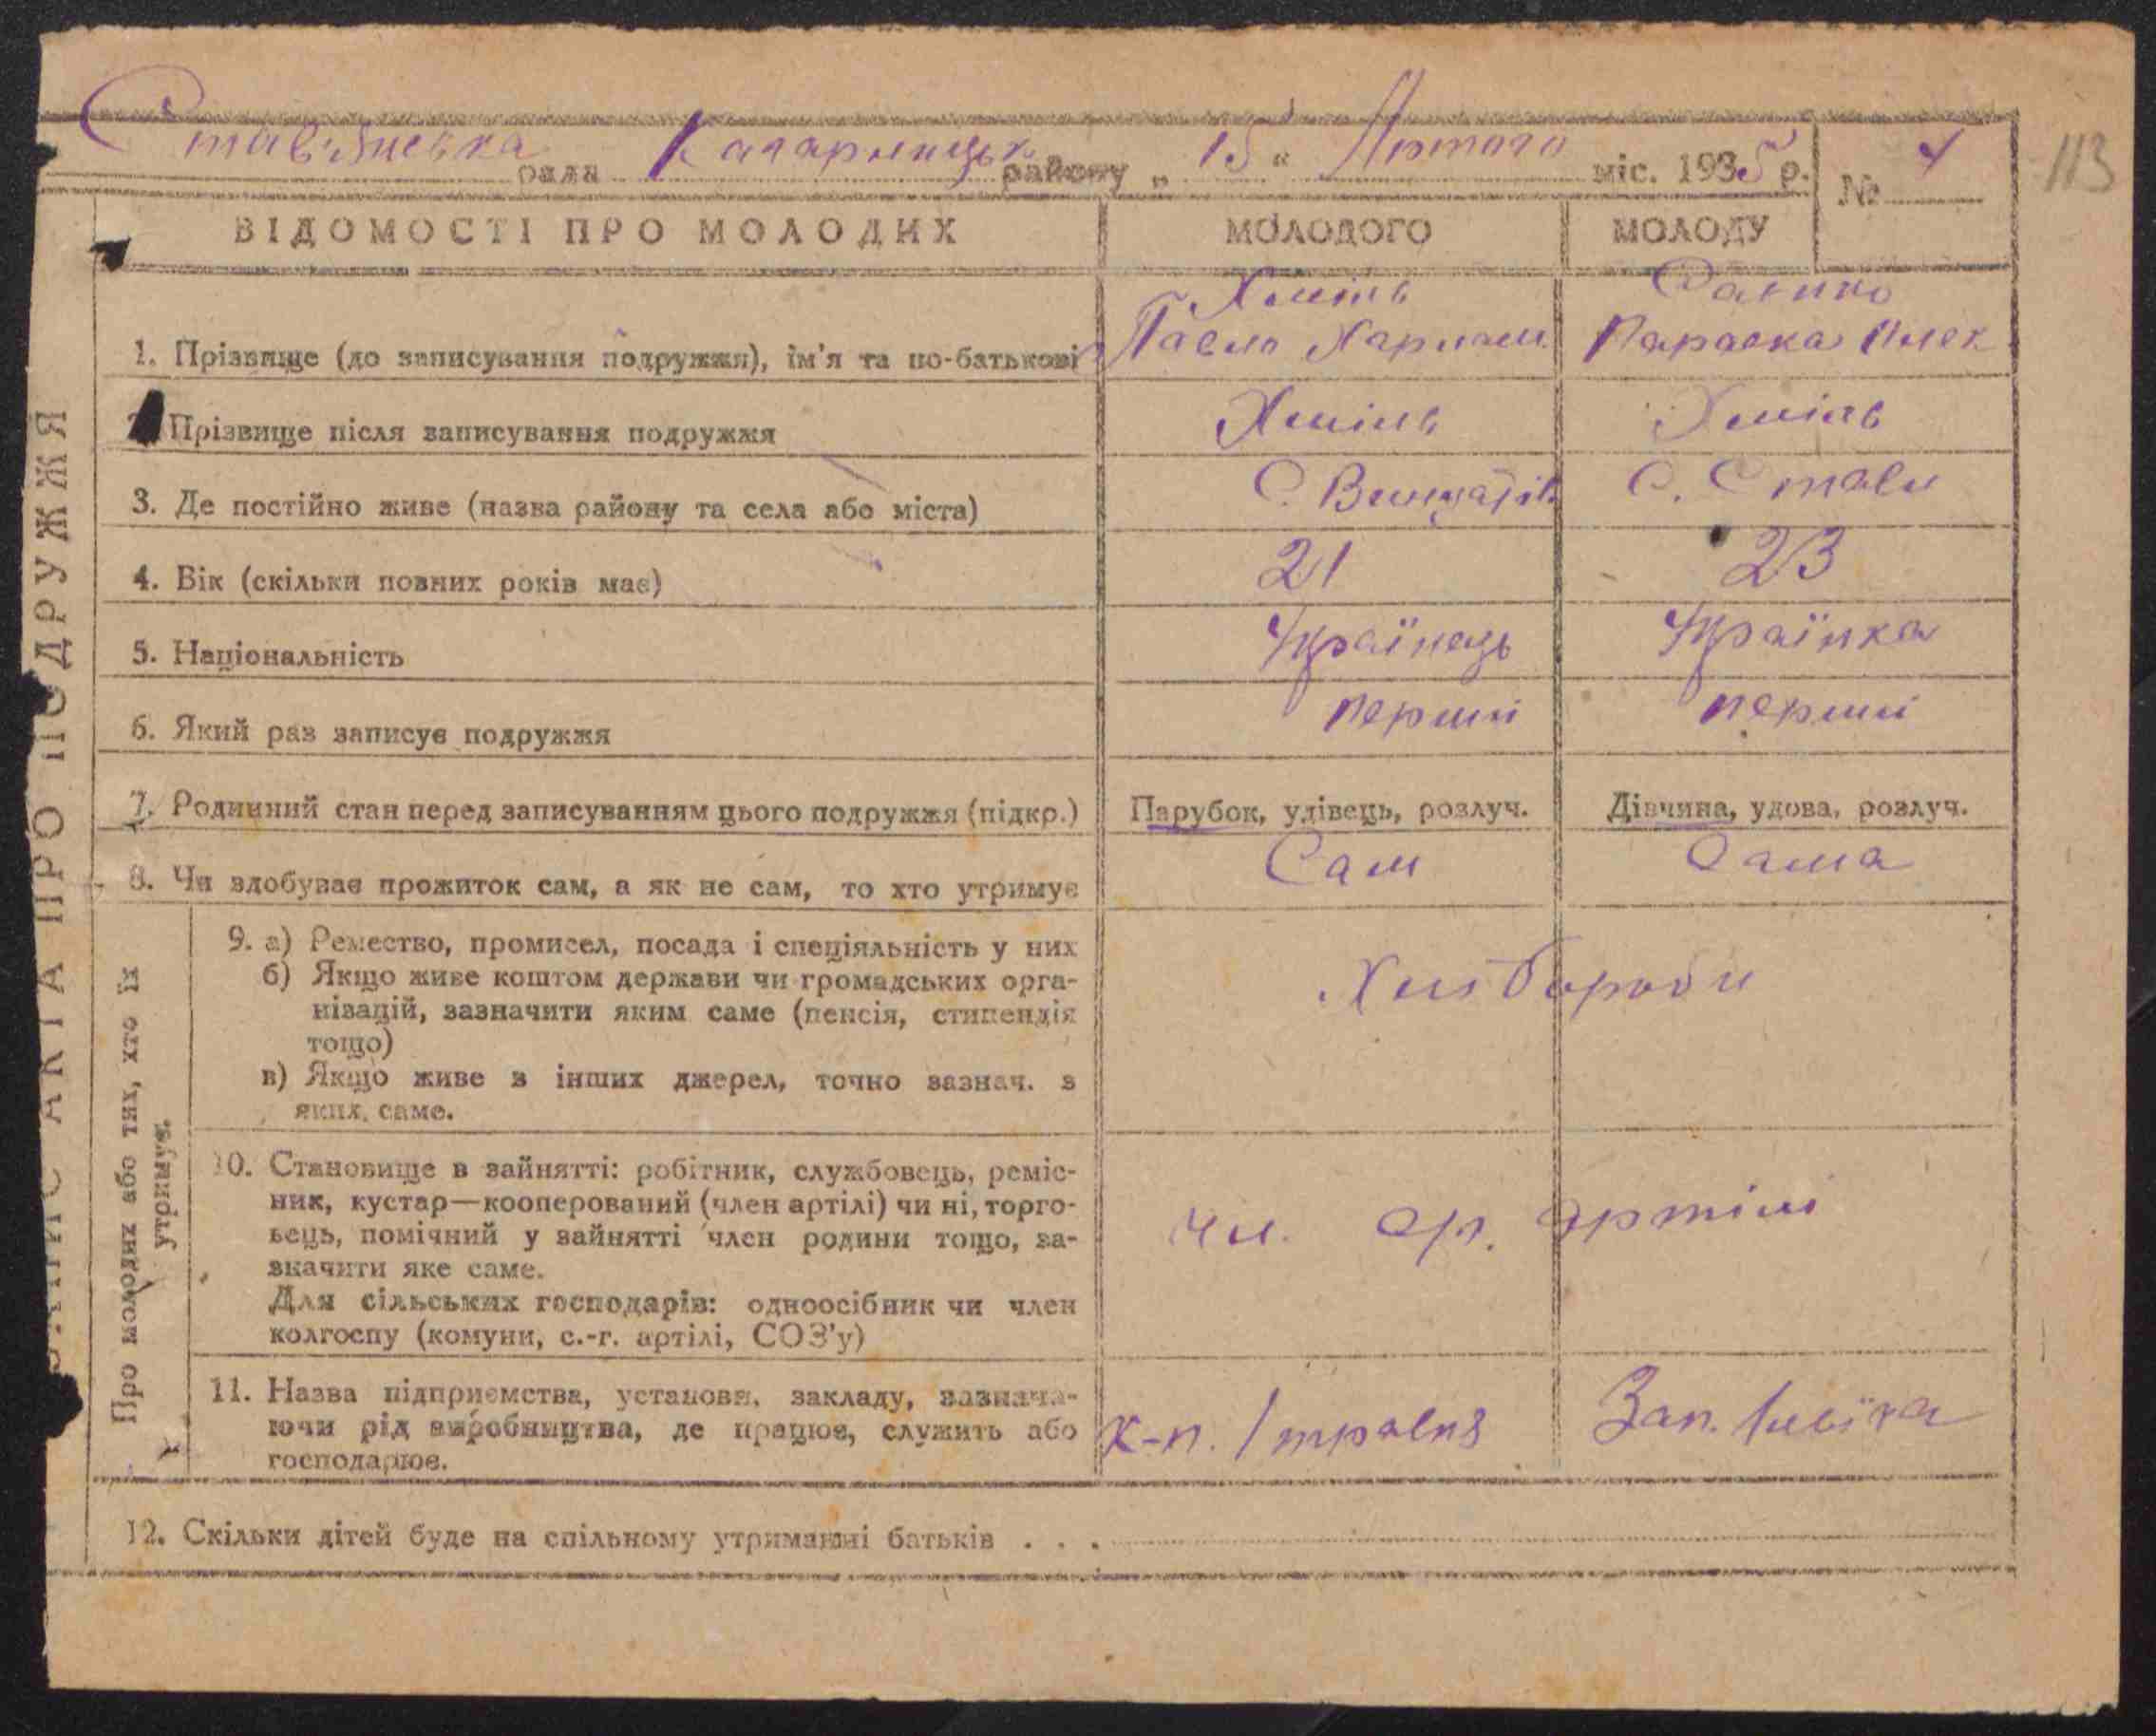 Ставівська рада Кагарлицьк району „15“ Лютого міс. 1935 р. № 4
113
ВІДОМОСТІ ПРО МОЛОДИХ МОЛОДОГО МОЛОДУ
1. Прізвище (до записування подружжя), ім'я та по-батькові Хміль Павло Харлам. Параска Олек
2. Прізвище після записування подружжя Хміль Хміль
3. Де постійно живе (назва району та села або міста) С. С. Стави
4. Вік (скільки повних років має) 21 23
5. Національність Українець Українка
6. Який раз записує подружжя перший перший
7. Родинний стан перед записуванням цього подружжя (підкр.) Парубок, удівець, розлуч. Дівчина, удова, розлуч.
8. Чи здобуває прожиток сам, а як не сам, то хто утримує Сам Сама
ЗАПИС АКТА ПРО ПОДРУЖЖЯ
Про молодих або тих, хто їх
утримує.
9. а) Ремество, промисел, посада і спеціяльність у них
б) Якщо живе коштом держави чи громадських орга-
нізацій, зазначити яким саме (пенсія, стипендія
тощо)
в) Якщо живе з інших джерел, точно зазнач. з
яких саме.
Хлібороби
10. Становище в зайнятті: робітник, службовець, реміс-
ник, кустар—кооперований (член артілі) чи ні, торго-
вець, помічний у зайнятті член родини тощо, за-
значити яке саме.
Для сільських господарів: одноосібник чи член
колгоспу (комуни, с.-г. артілі, СОЗ'у)
чл. артілі
11. Назва підприємства, установи, закладу, зазнача-
ючи рід виробництва, де працює, служить або
господарює.
к-п. 1 травня Зап. Ілліча
12. Скільки дітей буде на спільному утриманні батьків . . .